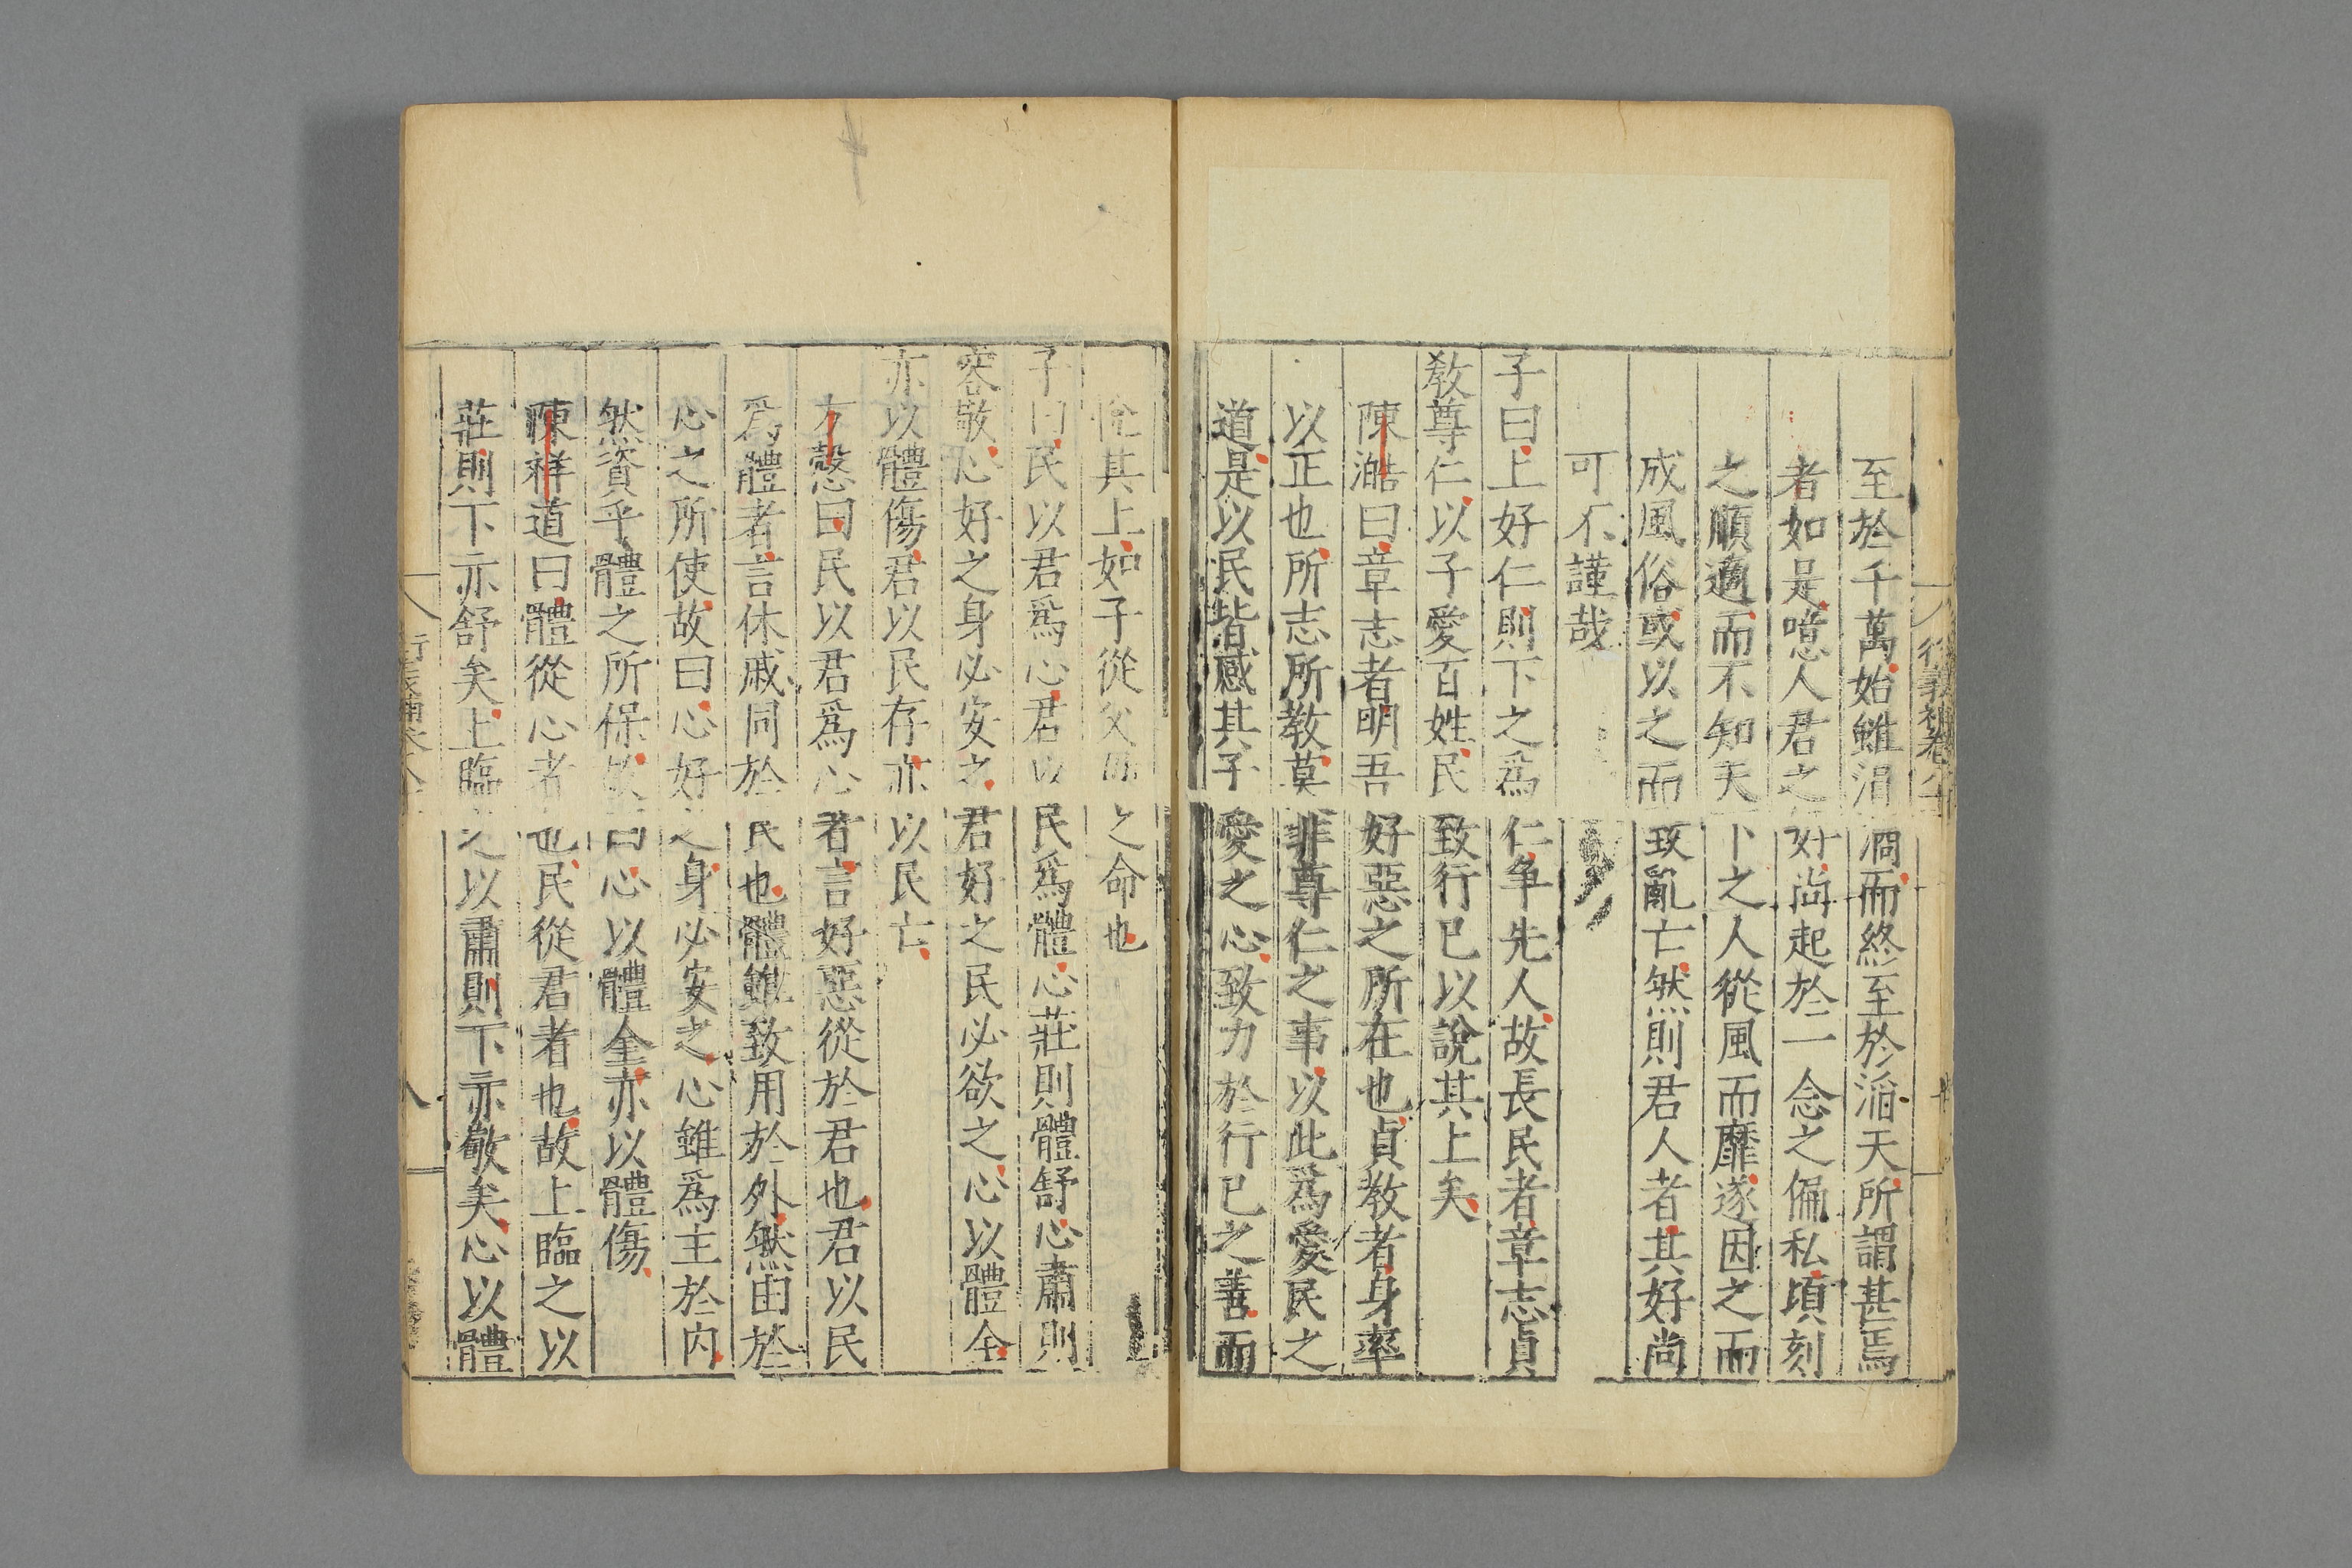 衍義補卷八十
至於千萬始雖涓涓而終至於滔天所謂甚焉
者如是噫人君之好尚起於一念之偏私頃刻
之順適而不知天下之人從風而靡遂因之而
成風俗或以之而致亂亡然則君人者其好尚
可不謹哉
子曰上好仁則下之爲仁爭先人故長民者章志貞
教尊仁以子愛百姓民致行已以說其上矣
陳澔曰章志者明吾好惡之所在也貞教者身率
以正也所志所教莫非尊仁之事以此爲愛民之
道是以民皆感其子愛之心致力於行已之善而
悅其上如子從父母之命也
子曰民以君爲心君以民爲體心莊則體舒心肅則
容敬心好之身必安之君好之民必欲之心以體全
亦以體傷君以民存亦以民亡
方慤曰民以君爲心者言好惡從於君也君以民
爲體者言休戚同於民也體雖致用於外然由於
心之所使故曰心好之身必安之心雖爲主於內
然資乎體之所保故曰心以體全亦以體傷
陳祥道曰體從心者也民從君者也故上臨之以
莊則下亦舒矣上臨之以肅則下亦敬矣心以體